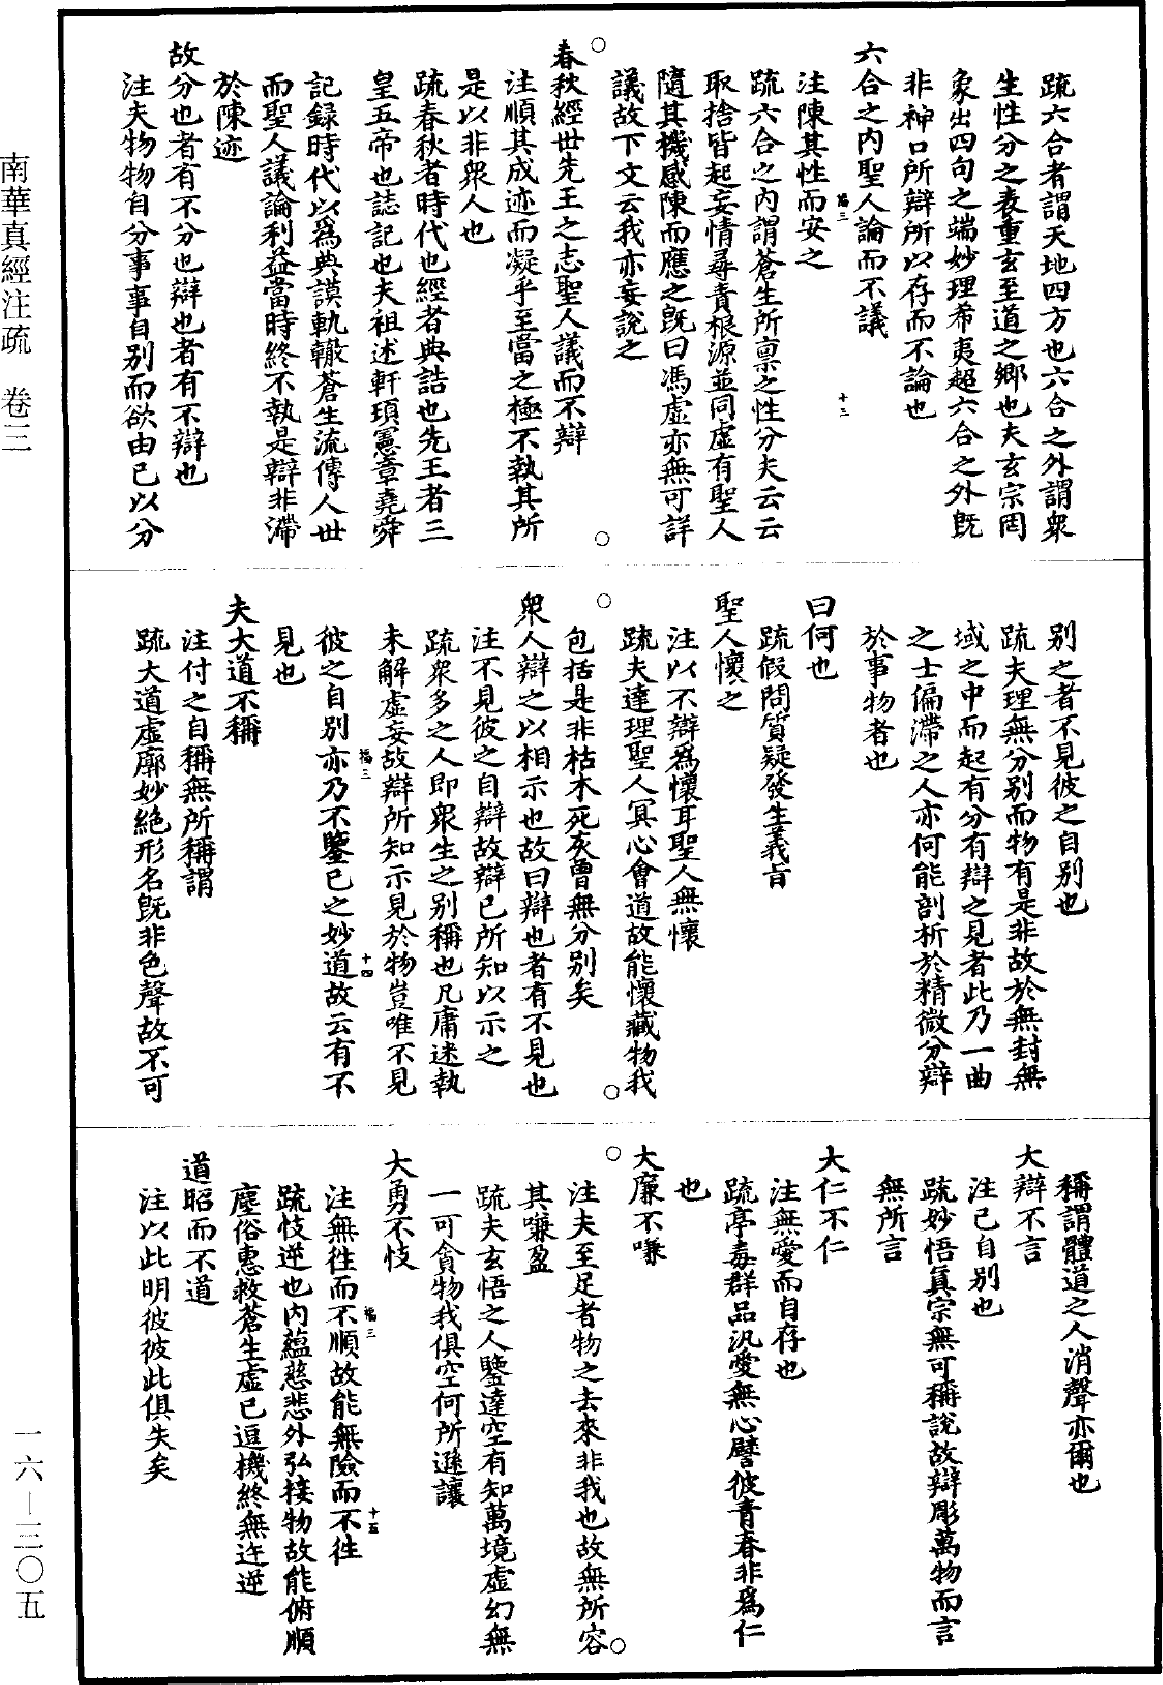 疏六合者謂天地四方也六合之外謂衆
生性分之表重玄至道之鄉也夫玄宗罔
象出四句之端妙理希夷超六合之外既
非神口所辯所以存而不論也
六合之内聖人論而不議
注陳其性而安之
疏六合之内謂蒼生所禀之性分夫云云
取捨皆起妄情尋責根源並同虛有聖人
隨其機感陳而應之既曰馮虛亦無可詳
議故下文云我亦妄說之
春秋經世先王之志聖人議而不辯
注順其成迹而凝乎至當之極不執其所
是以非衆人也
疏春秋者時代也經者典誥也先王者三
皇五帝也誌記也夫祖述軒頊憲章堯舜
記録時代以爲典謨軌轍蒼生流傳人世
而聖人議論利益當時終不執是辯非滯
於陳迹
故分也者有不分也辯也者有不辯也
注夫物物自分事事自别而欲由已以分
别之者不見彼之自别也
疏夫理無分别而物有是非故於無封無
域之中而起有分有辯之見者此乃一曲
之士偏滯之人亦何能剖析於精微分辯
於事物者也
曰何也
疏假問質疑發生義旨
聖人懷之
注以不辯爲懷耳聖人無懷
疏夫達理聖人冥心會道故能懷藏物我
包括是非枯木死灰曾無分别矣
衆人辯之以相示也故曰辯也者有不見也
注不見彼之自辯故辯已所知以示之
疏衆多之人即衆生之别稱也凡庸迷執
未解虛妄故辯所知示見於物豈唯不見
彼之自别亦乃不鑒已之妙道故云有不
見也
夫大道不稱
注付之自稱無所稱謂
疏大道虛廓妙絶形名既非色聲故不可
稱謂體道之人消聲亦爾也
大辯不言
注已自别也
疏妙悟真宗無可稱說故辯彫萬物而言
無所言
大仁不仁
注無愛而自存也
疏亭毒群品汎愛無心譬彼青春非爲仁
也
大廉不嗛
注夫至足者物之去來非我也故無所容
其嗛盈
疏夫玄悟之人鑒達空有知萬境虛幻無
一可貪物我俱空何所遜讓
大勇不忮
注無往而不順故能無險而不往
疏忮逆也内蘊慈悲外弘接物故能俯順
塵俗惠救蒼生虛已逗機終無迕逆
道昭而不道
注以此明彼彼此俱失矣
福三
十三
福三
十四
福三
十五
南華真經注疏　卷三
一六—三〇五